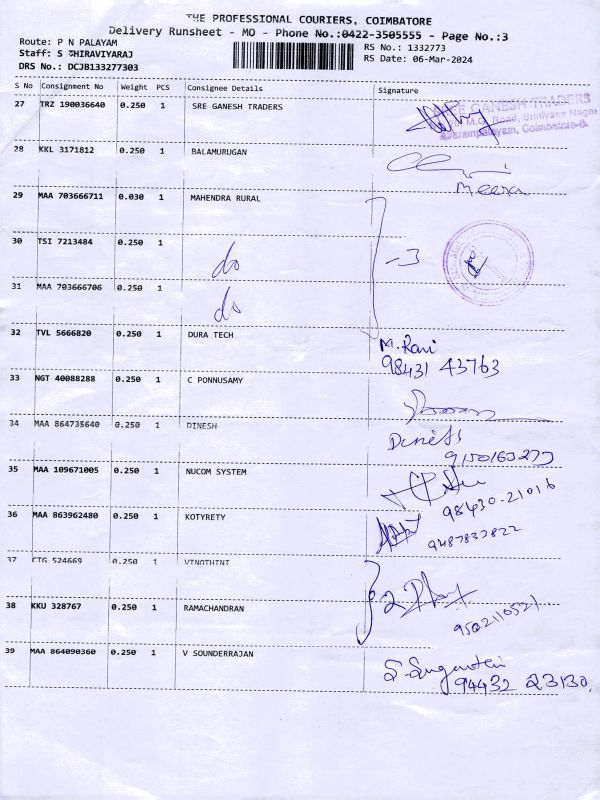 THE PROFESSIONAL COURIERS, COIMBATORE
Delivery Runsheet - MO - Phone No.:0422-3505555 - Page No.:3
Route: P N PALAYAM
RS No.: 1332773
Staff: S THIRAVIYARAJ
RS Date: 06-Mar-2024
DRS No.: DCJB133277303
S No Consignment No Weight PCS Consignee Details Signature
27 TRZ 190036640 0.250 1 SRE GANESH TRADERS
SRE GANESH TRADERS
M.G. Road, Srinivasa Nagar
Coimbatore-6
28 KKL 3171812 0.250 1 BALAMURUGAN
Meera
29 MAA 703666711 0.030 1 MAHENDRA RURAL
30 TSI 7213484 0.250 1 do
3
31 MAA 703666706 0.250 1 do
32 TVL 5666820 0.250 1 DURA TECH M. Ravi
98431 43763
33 NGT 40088288 0.250 1 C PONNUSAMY
34 MAA 864735640 0.250 1 DINESH Dinesh
9150163277
35 MAA 109671005 0.250 1 NUCOM SYSTEM
98430-21016
36 MAA 863962480 0.250 1 KOTYRETY
9487837822
37 CTG 524669 0.250 1 VINOTHINI
2
38 KKU 328767 0.250 1 RAMACHANDRAN
9502110521
39 MAA 864090360 0.250 1 V SOUNDERRAJAN
94432 23130.